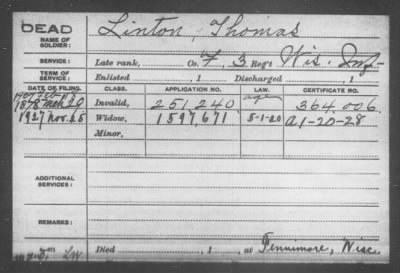 DEAD
NAME OF SOLDIER: Linton, Thomas
SERVICE: Late rank, Co. F, 3 Reg't Wis. Inf.
TERM OF SERVICE: Enlisted , 1 Discharged , 1
DATE OF FILING. CLASS. APPLICATION NO. LAW. CERTIFICATE NO.
1878 Mch 20 Invalid, 251,240 age 364,006.
1927 Nov. 25 Widow, 1597,671 5-1-20 A1-20-28
Minor,
ADDITIONAL SERVICES:
REMARKS:
Died , 1 , at Fennimore, Wisc.